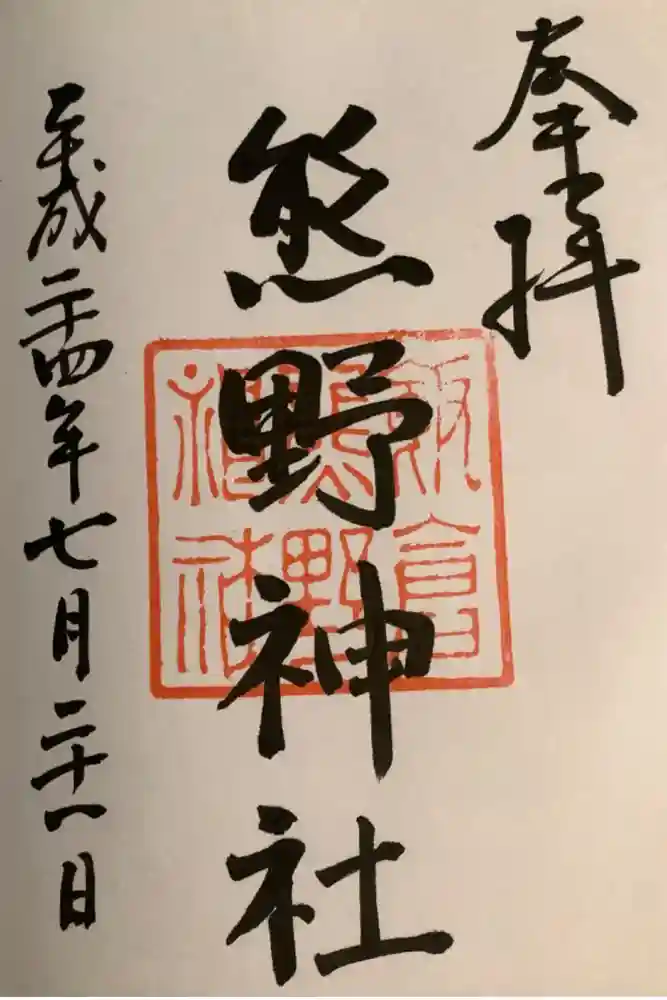 奉拝
熊野神社
平成二十四年七月二十一日